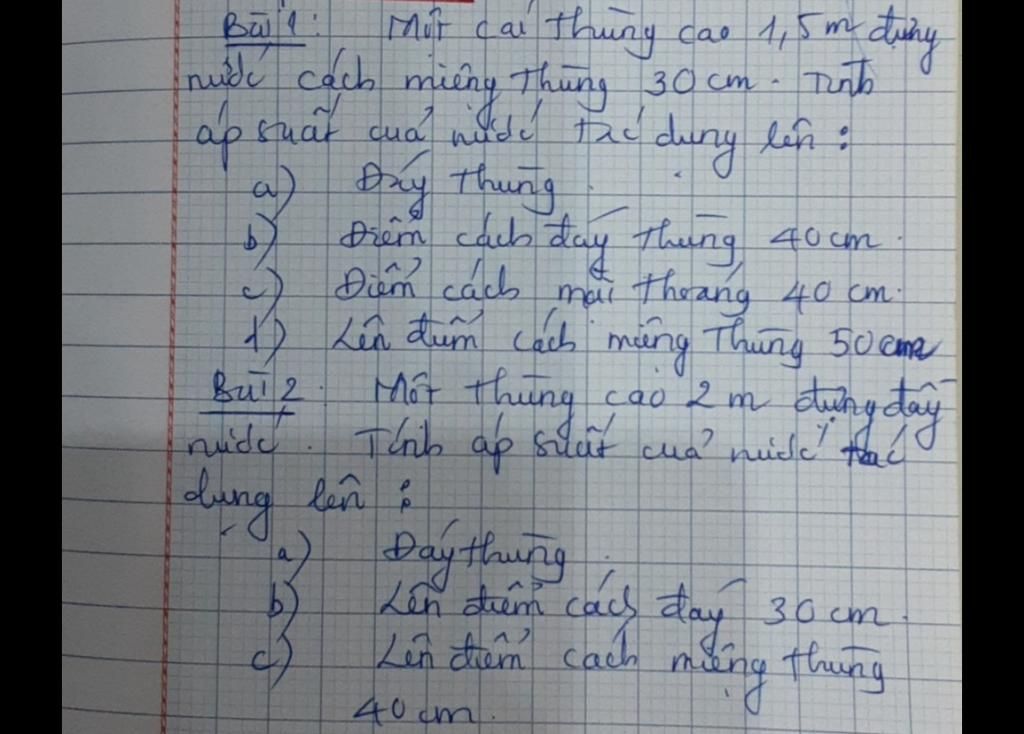 Bài 1: Một cái thùng cao 1,5m đựng
nước cách miệng thùng 30 cm. Tính
áp suất của nước tác dụng lên :
a) Đáy thùng.
b) Điểm cách đáy thùng 40cm.
c) Điểm cách mặt thoáng 40 cm.
d) Lên điểm cách miệng thùng 50cm
Bài 2: Một thùng cao 2 m đựng đầy
nước. Tính áp suất của nước tác
dụng lên :
a) Đáy thùng.
b) Lên điểm cách đáy 30 cm.
c) Lên điểm cách miệng thùng
40 cm.